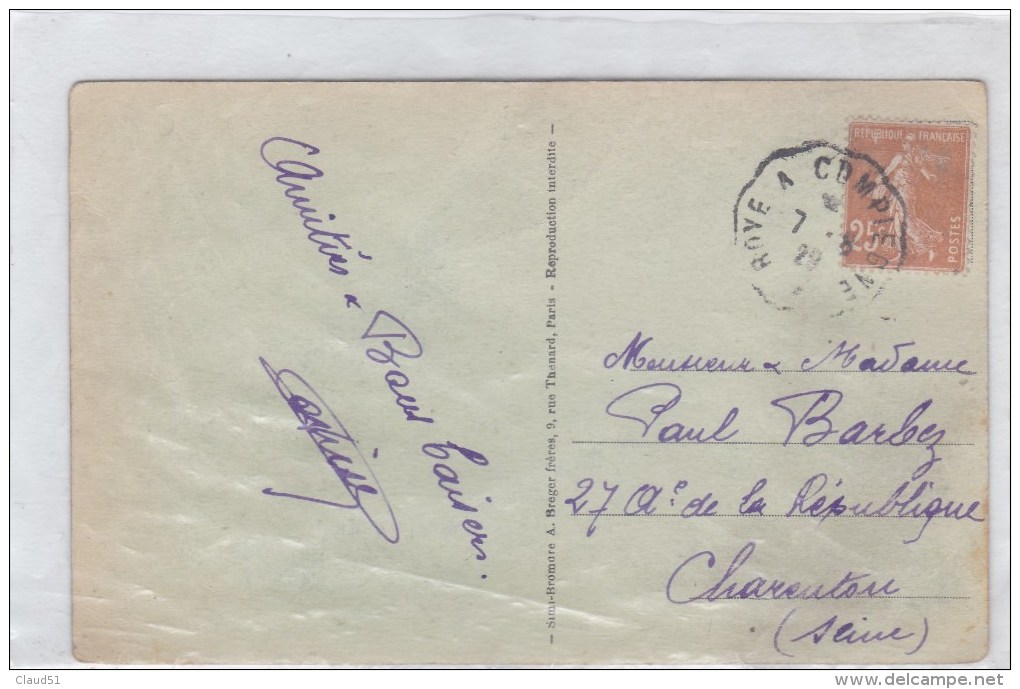 Amitiés & Bons baisers.
— Simi-Bromure A. Breger frères, 9, rue Thenard, Paris - Reproduction interdite —
ROYE A COMPIEGNE
7 -8
29
REPUBLIQUE FRANÇAISE
25
POSTES
Monsieur & Madame
Paul Barbez
27 Ae. de la République
Charenton
(Seine)
Claud51
www.delcampe.net